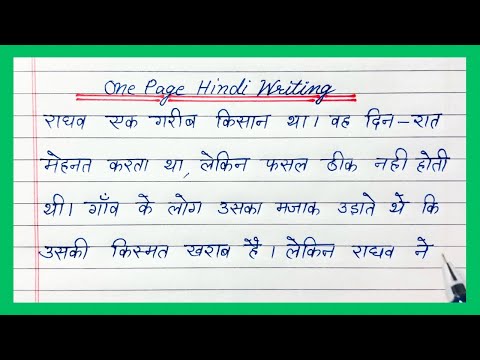 One Page Hindi Writing
राघव एक गरीब किसान था। वह दिन-रात
मेहनत करता था, लेकिन फसल ठीक नही होती
थी। गाँव के लोग उसका मजाक उड़ाते थे कि
उसकी किस्मत खराब है। लेकिन राघव ने